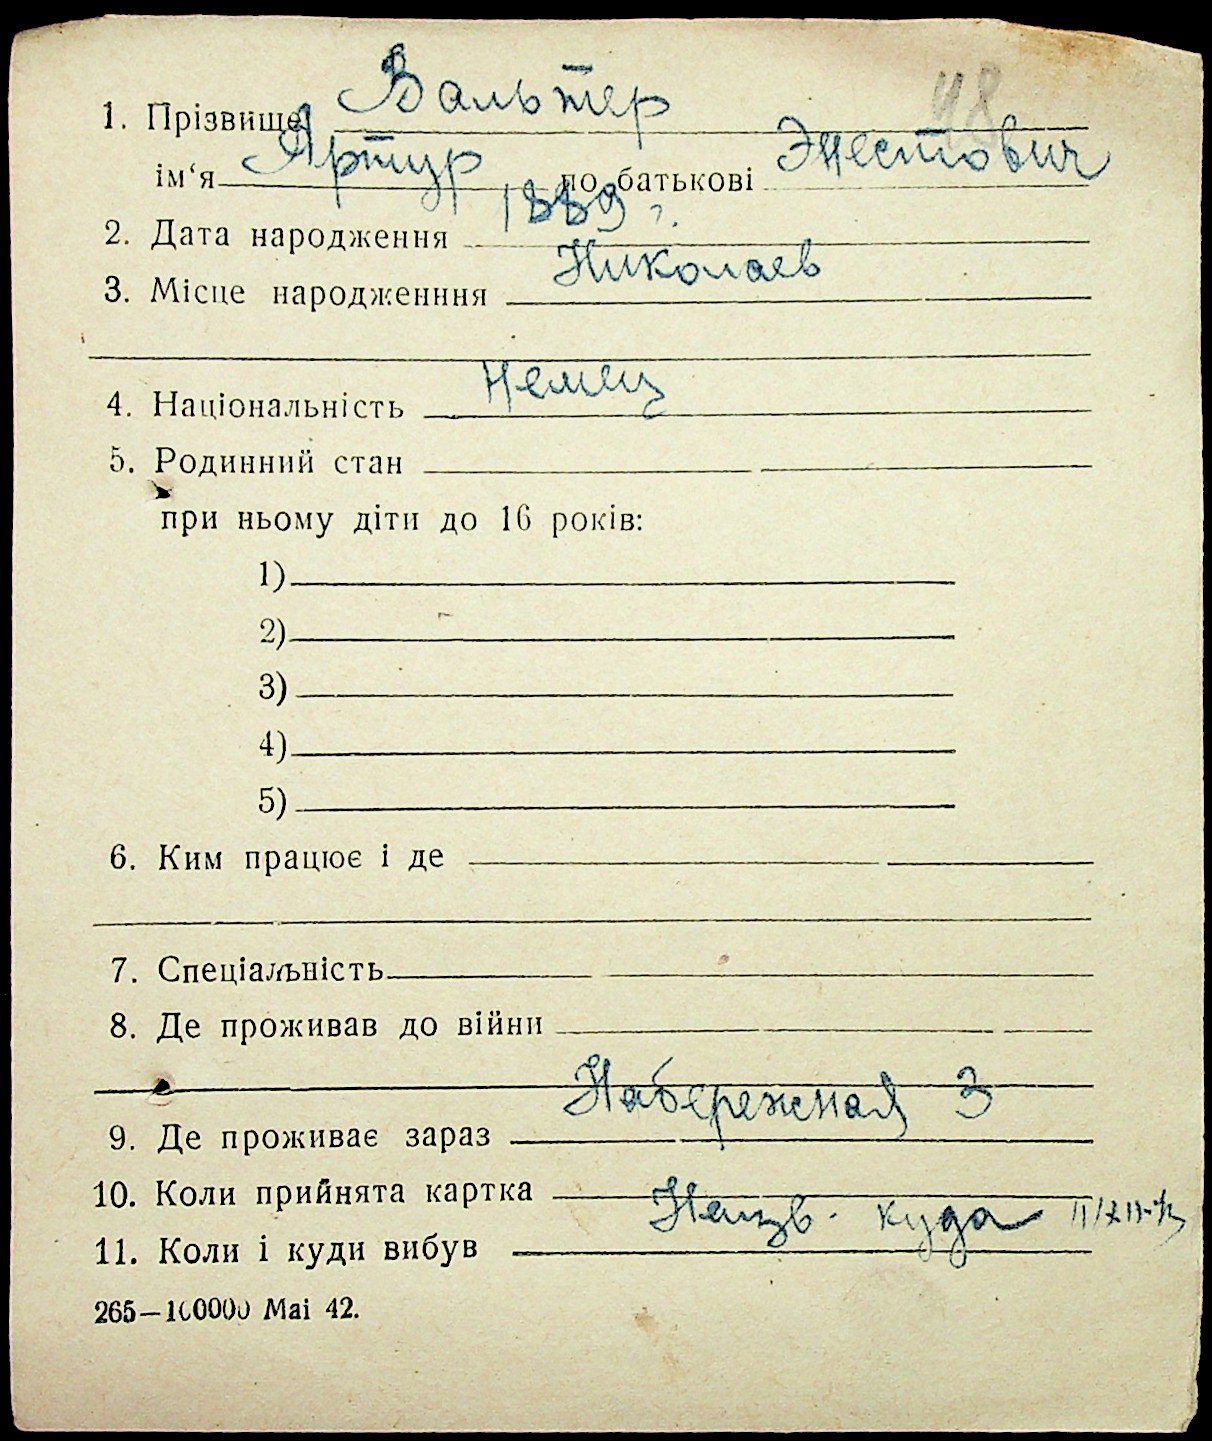 48
1. Прізвище Вальтер
ім‘я Артур по батькові Энестович
2. Дата народження 1889 г.
3. Місце народженння Николаев
4. Національність Немец
5. Родинний стан
при ньому діти до 16 років:
1)
2)
3)
4)
5)
6. Ким працює і де
7. Спеціальність
8. Де проживав до війни
9. Де проживає зараз Набережная 3
10. Коли прийнята картка
11. Коли і куди вибув Неизв. куда
265—100000 Маі 42.